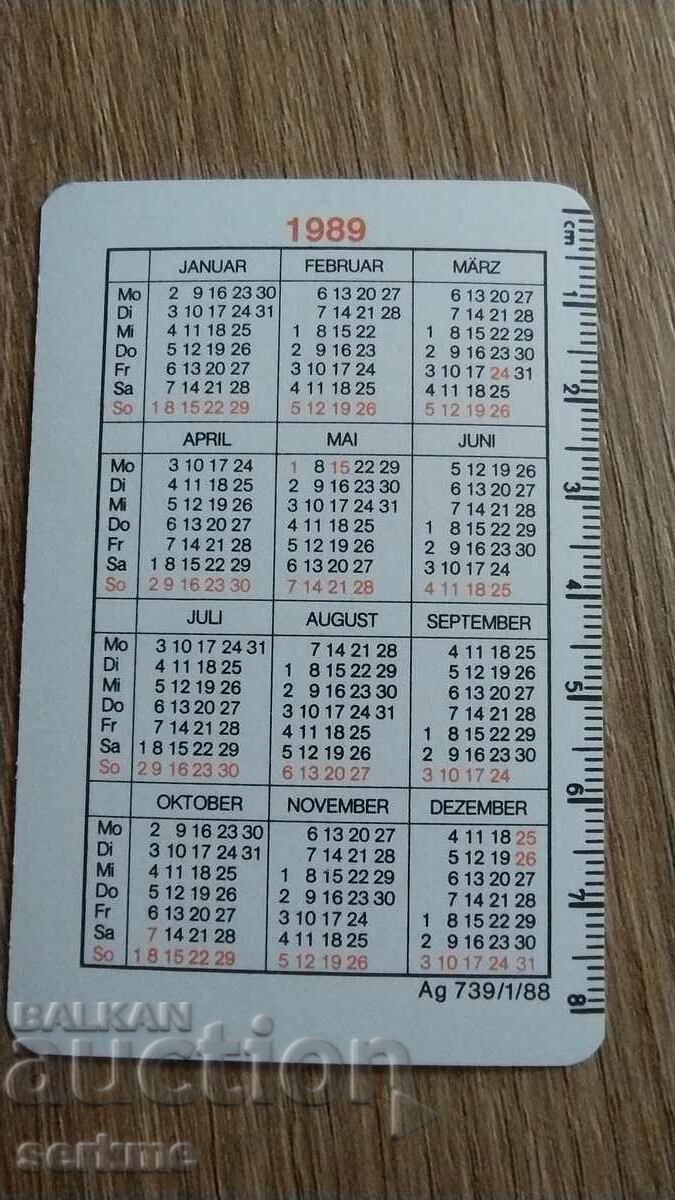 1989
cm
JANUAR FEBRUAR MÄRZ
Mo 2 9 16 23 30 6 13 20 27 6 13 20 27
Di 3 10 17 24 31 7 14 21 28 7 14 21 28
Mi 4 11 18 25 1 8 15 22 1 8 15 22 29
Do 5 12 19 26 2 9 16 23 2 9 16 23 30
Fr 6 13 20 27 3 10 17 24 3 10 17 24 31
Sa 7 14 21 28 4 11 18 25 4 11 18 25
So 1 8 15 22 29 5 12 19 26 5 12 19 26
APRIL MAI JUNI
Mo 3 10 17 24 1 8 15 22 29 5 12 19 26
Di 4 11 18 25 2 9 16 23 30 6 13 20 27
Mi 5 12 19 26 3 10 17 24 31 7 14 21 28
Do 6 13 20 27 4 11 18 25 1 8 15 22 29
Fr 7 14 21 28 5 12 19 26 2 9 16 23 30
Sa 1 8 15 22 29 6 13 20 27 3 10 17 24
So 2 9 16 23 30 7 14 21 28 4 11 18 25
JULI AUGUST SEPTEMBER
Mo 3 10 17 24 31 7 14 21 28 4 11 18 25
Di 4 11 18 25 1 8 15 22 29 5 12 19 26
Mi 5 12 19 26 2 9 16 23 30 6 13 20 27
Do 6 13 20 27 3 10 17 24 31 7 14 21 28
Fr 7 14 21 28 4 11 18 25 1 8 15 22 29
Sa 1 8 15 22 29 5 12 19 26 2 9 16 23 30
So 2 9 16 23 30 6 13 20 27 3 10 17 24
OKTOBER NOVEMBER DEZEMBER
Mo 2 9 16 23 30 6 13 20 27 4 11 18 25
Di 3 10 17 24 31 7 14 21 28 5 12 19 26
Mi 4 11 18 25 1 8 15 22 29 6 13 20 27
Do 5 12 19 26 2 9 16 23 30 7 14 21 28
Fr 6 13 20 27 3 10 17 24 1 8 15 22 29
Sa 7 14 21 28 4 11 18 25 2 9 16 23 30
So 1 8 15 22 29 5 12 19 26 3 10 17 24 31
Ag 739/1/88
1
2
3
4
5
6
7
8
BALKAN
auction
serkme